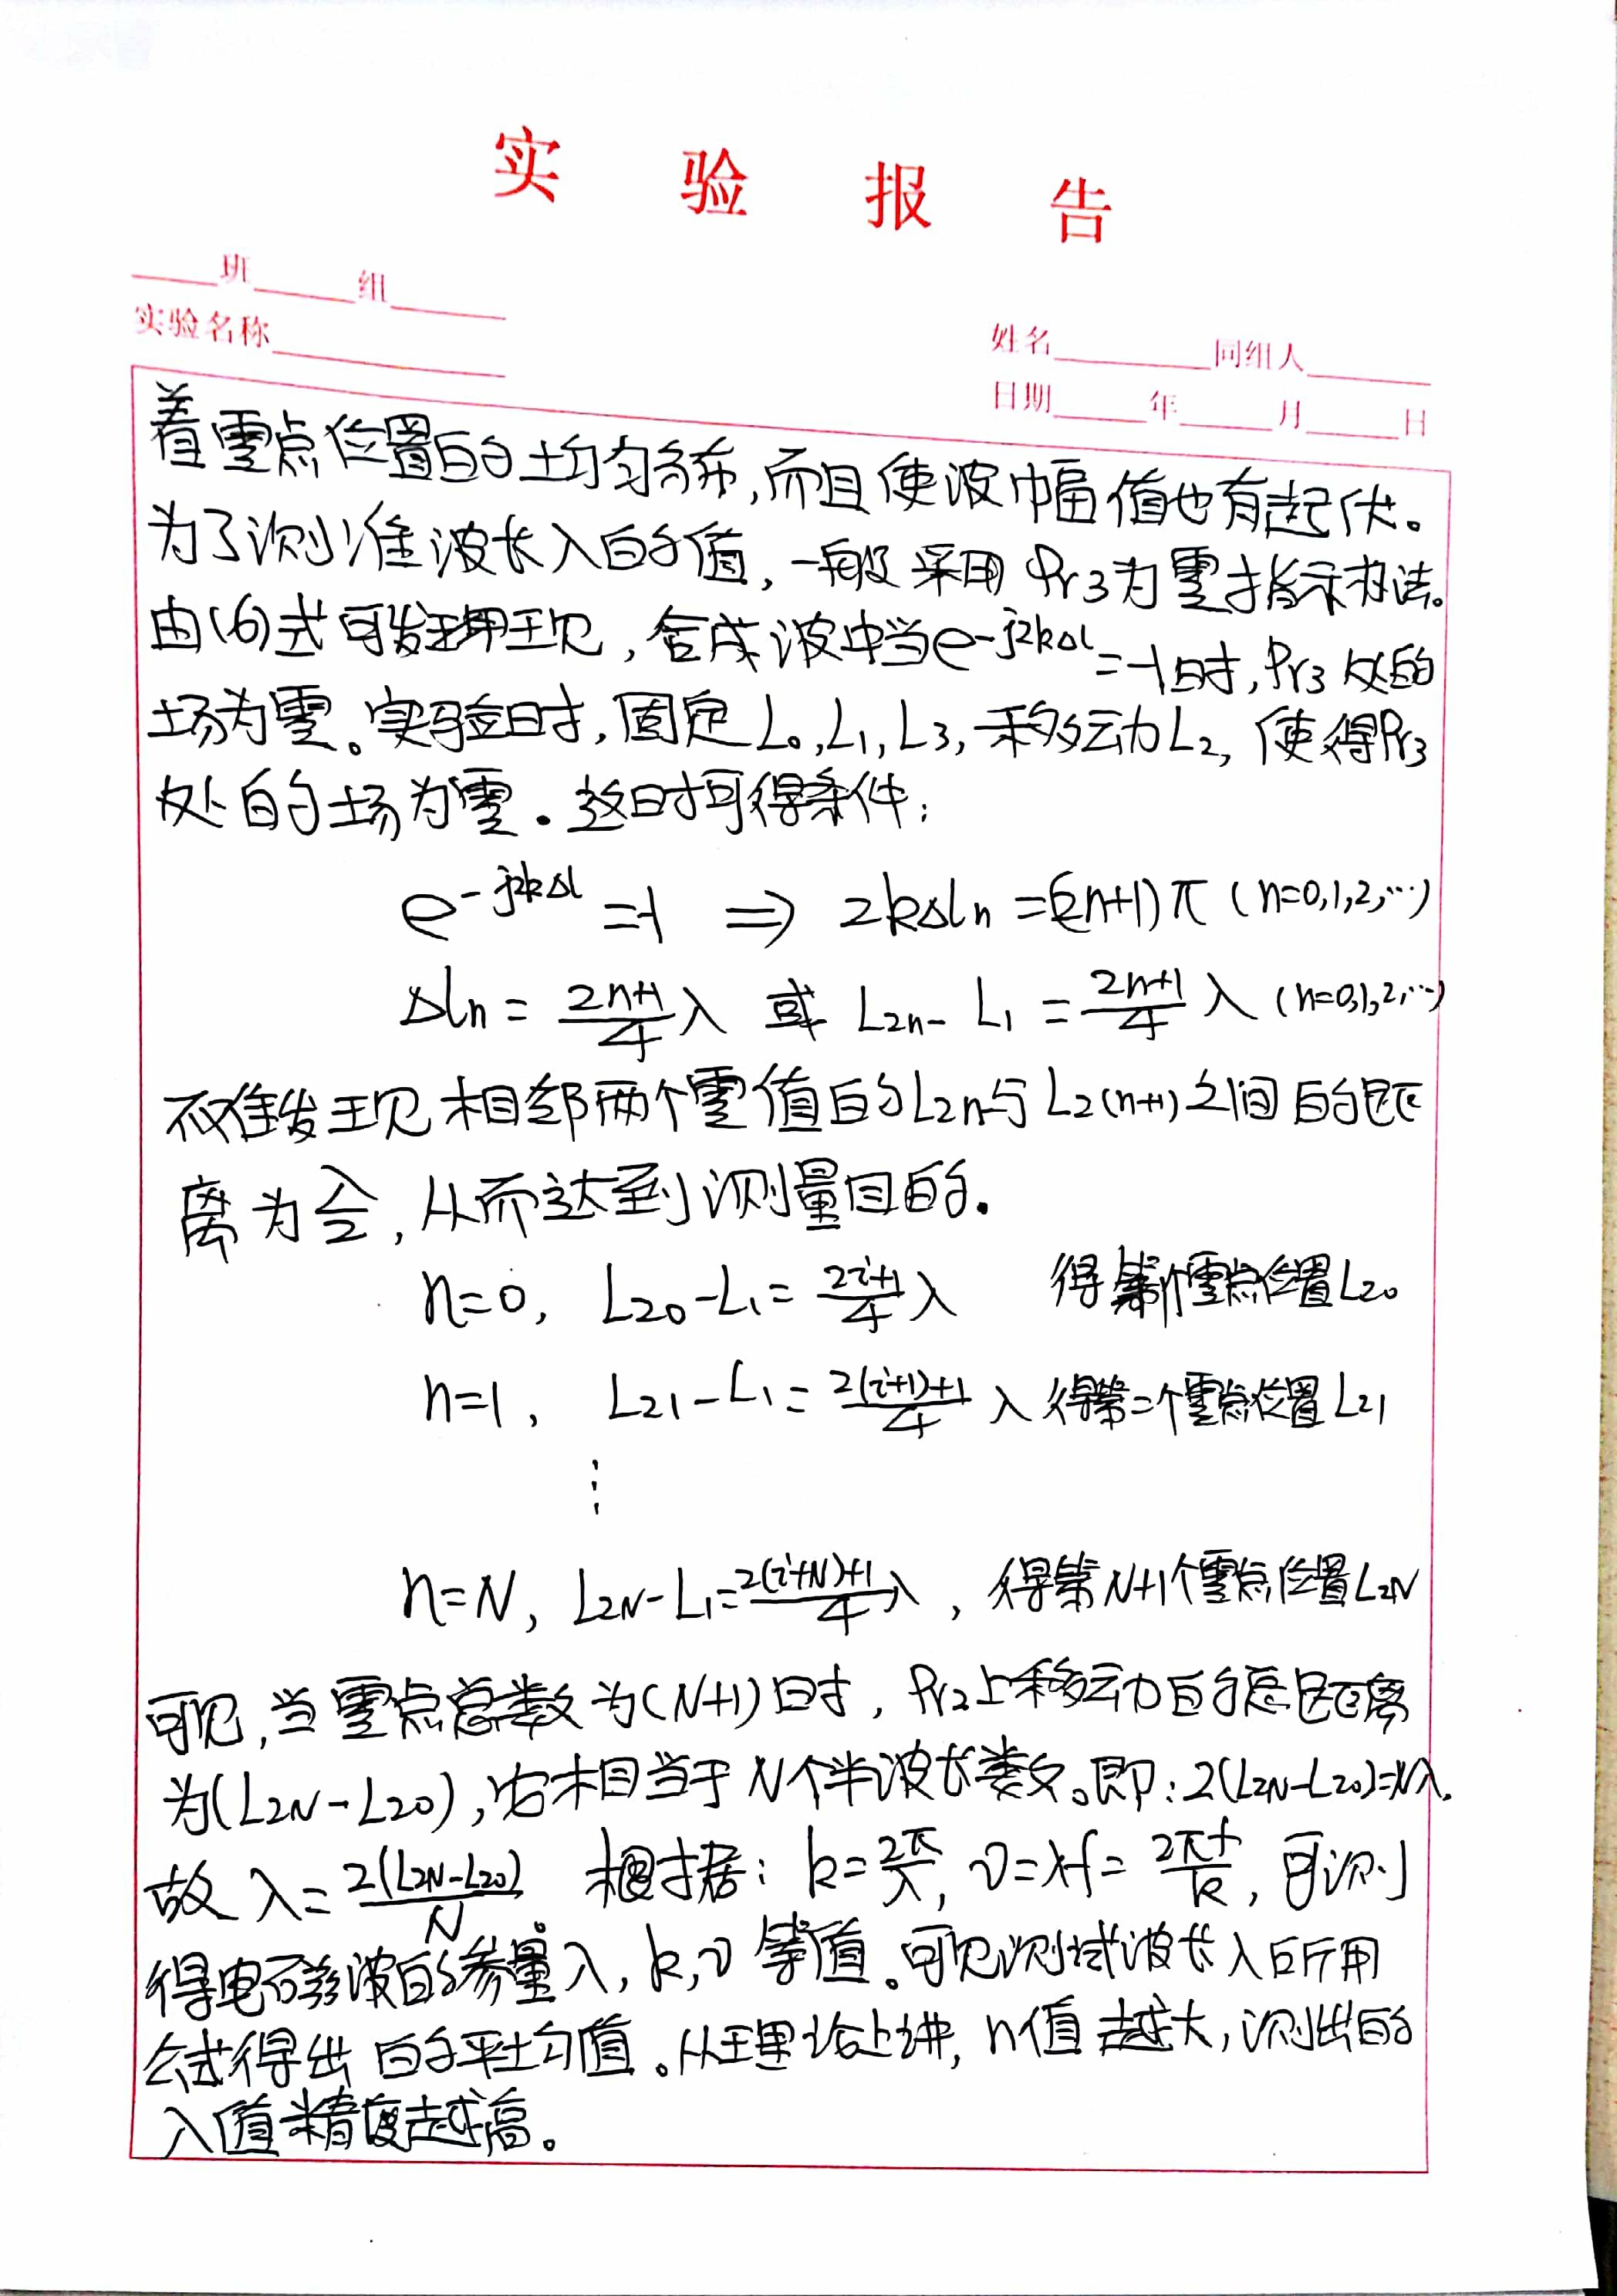 实 验 报 告
____班______组______
实验名称____________
姓名________同组人______
日期____年____月____日
着零点位置的均匀分布,而且使波幅值也有起伏。
为了测准波长λ的值,一般采用Pr3为零指示办法。
由(6)式可发现,合成波中当e^{-j2kΔl}=-1时,Pr3处的
场为零。实验时,固定L₀,L₁,L₃,移动L₂,使得Pr3
处的场为零.这时可得条件:
e^{-j2kΔl}=-1 ⇒ 2kΔlₙ=(2n+1)π (n=0,1,2,…)
Δlₙ = (2n+1)/4 λ 或 L₂ₙ - L₁ = (2n+1)/4 λ (n=0,1,2,…)
不难发现相邻两个零值的L₂ₙ与L₂₍ₙ₊₁₎之间的距
离为λ/2,从而达到测量目的.
n=0, L₂₀-L₁= (2i+1)/4 λ 得第1个零点位置L₂₀
n=1, L₂₁-L₁= (2(i+1)+1)/4 λ 得第二个零点位置L₂₁
⋮
n=N, L_{2N}-L₁= (2(i+N)+1)/4 λ, 得第N+1个零点位置L_{2N}
可见,当零点总数为(N+1)时,Pr2上移动的总距离
为(L_{2N}-L₂₀),它相当于N个半波长数。即:2(L_{2N}-L₂₀)=Nλ.
故 λ= 2(L_{2N}-L₂₀)/N. 根据: k=2π/λ, v=λf= 2πf/k, 可测
得电磁波的参量λ,k,v等值。可见测试波长λ所用
公式得出的平均值。从理论上讲,n值越大,测出的
λ值精度越高。